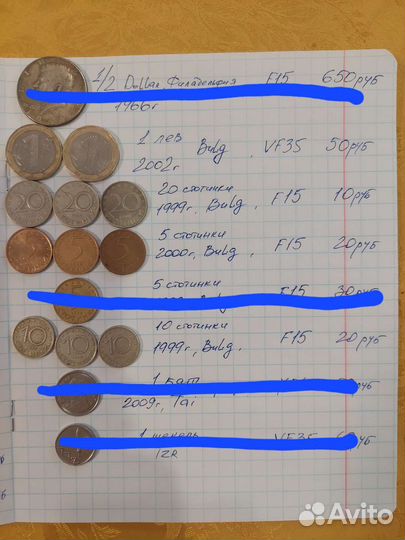 1/2 Dollar Филадельфия F15 650руб
1966г
1 лев Bulg, VF35 50руб
2002г
20 стотинки F15 10руб
1999г, Bulg,
5 стотинки F15 20руб
2000г, Bulg,
5 стотинки F15 30руб
10 стотинки F15 20руб
1999г, Bulg,
1 бат
2009г, Tai
1 шекель VF35 руб
IZR
20 20 20
10 10 10
Avito